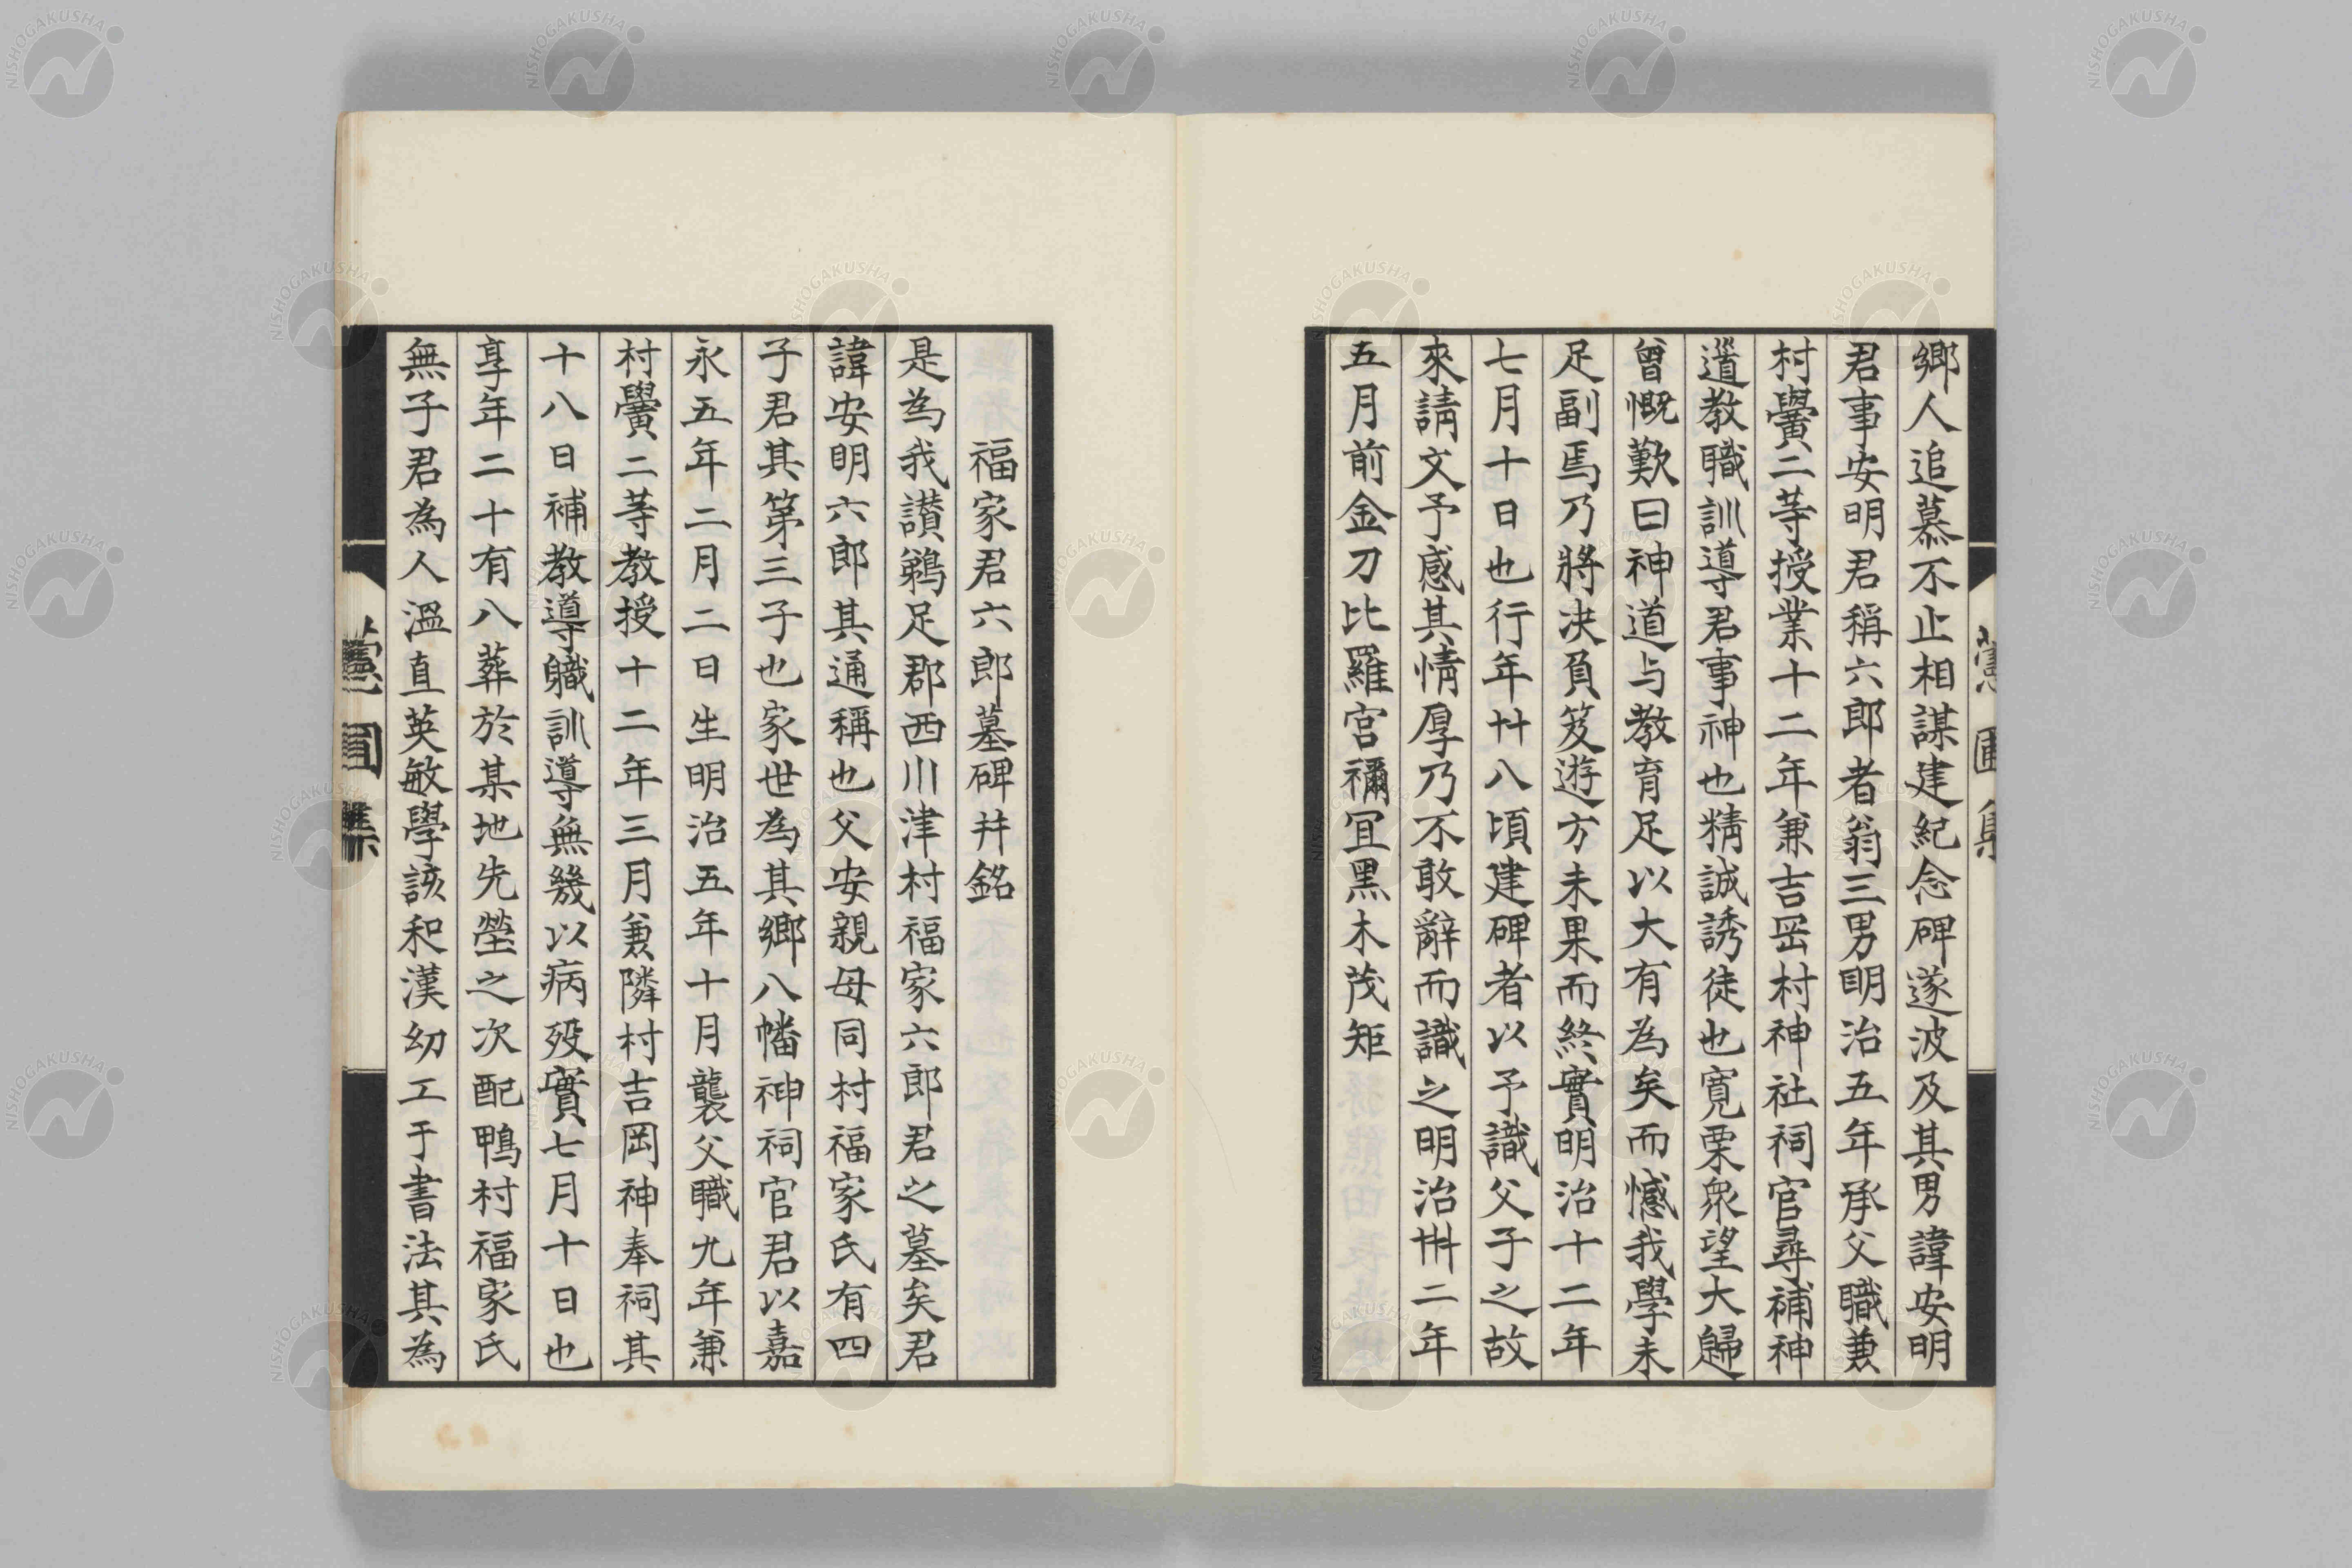 鄉人追慕不止相謀建紀念碑遂波及其男諱安明
君事安明君稱六郎者翁三男明治五年承父職兼
村黌二等授業十二年兼吉岡村神社祠官尋補神
道教職訓導君事神也精誠誘徒也寬栗衆望大歸
曾慨歎曰神道与教育足以大有為矣而憾我學未
足副焉乃將決負笈遊方未果而終實明治十二年
七月十日也行年廿八頃建碑者以予識父子之故
來請文予感其情厚乃不敢辭而識之明治卅二年
五月前金刀比羅宮禰宜黑木茂矩
福家君六郎墓碑并銘
是為我讃鵜足郡西川津村福家六郎君之墓矣君
諱安明六郎其通稱也父安親母同村福家氏有四
子君其第三子也家世為其鄉八幡神祠官君以嘉
永五年二月二日生明治五年十月襲父職九年兼
村黌二等教授十二年三月兼隣村吉岡神奉祠其
十八日補教導職訓導無幾以病歿實七月十日也
享年二十有八葬於某地先塋之次配鴨村福家氏
無子君為人溫直英敏學該和漢幼工于書法其為